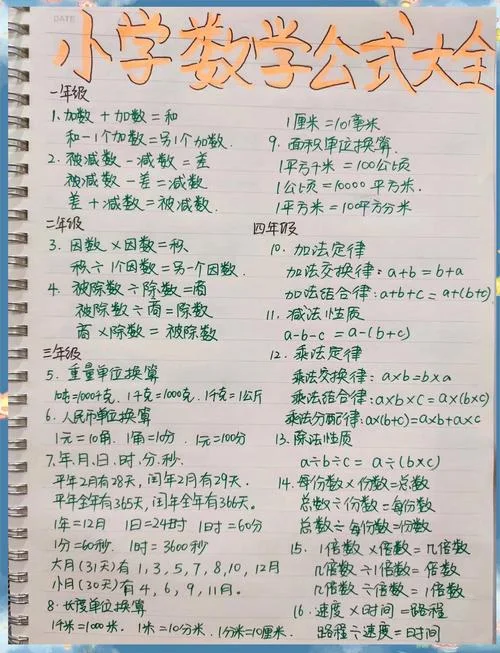 DATE
小学数学公式大全
一年级
1.加数 + 加数 = 和
和-1个加数=另1个加数.
2. 被减数 - 减数 = 差
被减数 - 差 = 减数
差 + 减数 = 被减数.
二年级
3. 因数 × 因数 = 积
积 ÷ 1个因数 = 另一个因数.
4. 被除数 ÷ 除数 = 商
被除数 ÷ 商 = 除数
商 × 除数 = 被除数
三年级
5. 重量单位换算
1吨=1000千克, 1千克=1000克, 1千克=1公斤
6. 人民币单位换算
1元=10角, 1角=10分, 1元=100分
7.年.月.日.时.分.秒.
平年2月有28天, 闰年2月有29天.
平年全年有365天, 闰年全年有366天.
1年=12月 1日=24时 1时=60分
1分=60秒. 1时=3600秒
大月(31天)有1,3,5,7,8,10,12月
小月(30天)有4,6,9,11月.
8.长度单位换算
1千米=1000米. 1米=10分米. 1分米=10厘米.
1厘米=10毫米
9. 面积单位换算.
1平方千米=100公顷
1公顷=10000平方米.
1平方米=100平方分米
四年级
10. 加法定律
加法交换律:a+b=b+a
加法结合律:a+b+c=a+(b+c)
11. 减法性质
a-b-c = a-(b+c)
12. 乘法定律
乘法交换律:a×b=b×a
乘法结合律:a×b×c=a×(b×c)
乘法分配律:a×(b+c)=a×b+a×c
13. 除法性质
a÷b÷c = a÷(b×c)
14. 每份数×份数=总数
总数÷份数=每份数
总数÷每份数=份数
15. 1倍数×倍数=几倍数
几倍数÷1倍数=倍数
几倍数÷倍数=1倍数
16. 速度×时间=路程
路程÷速度=时间